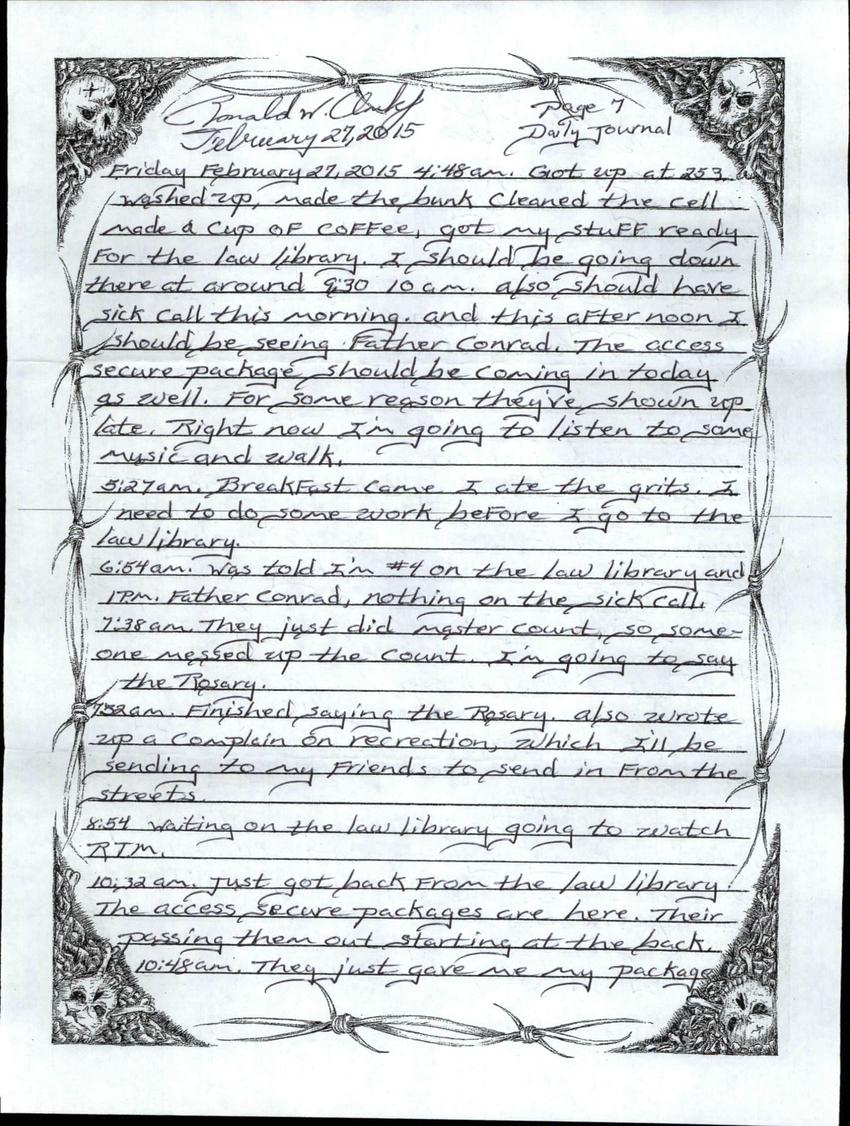 Ronald W. Clark
Page 7
February 27, 2015
Daily Journal
Friday February 27, 2015 4:48am. Got up at 253. a
washed up, made the bunk Cleaned the cell
made a Cup OF COFFee, got my stuFF ready
For the law library. I should be going down
there at around 9:30 10 am. also should have
sick call this morning. and this aFter noon I
should be seeing Father Conrad. The access
secure package should be coming in today
as well. For some reason they've shown up
late. Right now I'm going to listen to some
music and walk.
5:27am. BreakFast came I ate the grits. I
need to do some work beFore I go to the
law library.
6:54am. was told I'm #4 on the law library and
1PM. Father Conrad, nothing on the sick call.
7:38am. They just did master count, so some=
one messed up the count. I'm going to say
the Rosary.
752am. Finished saying the Rosary. also wrote
up a Complain on recreation, which I'll be
sending to my Friends to send in From the
streets.
8:54 waiting on the law library going to watch
RTM.
10:32 am. Just got back From the law library.
The access secure packages are here. Their
passing them out starting at the back.
10:48am. They just gave me my package